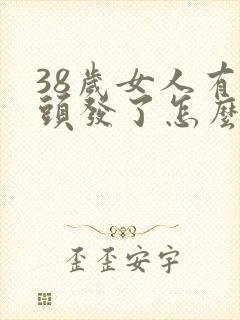 38歲女人有
頭發了怎麼
歪歪安宇